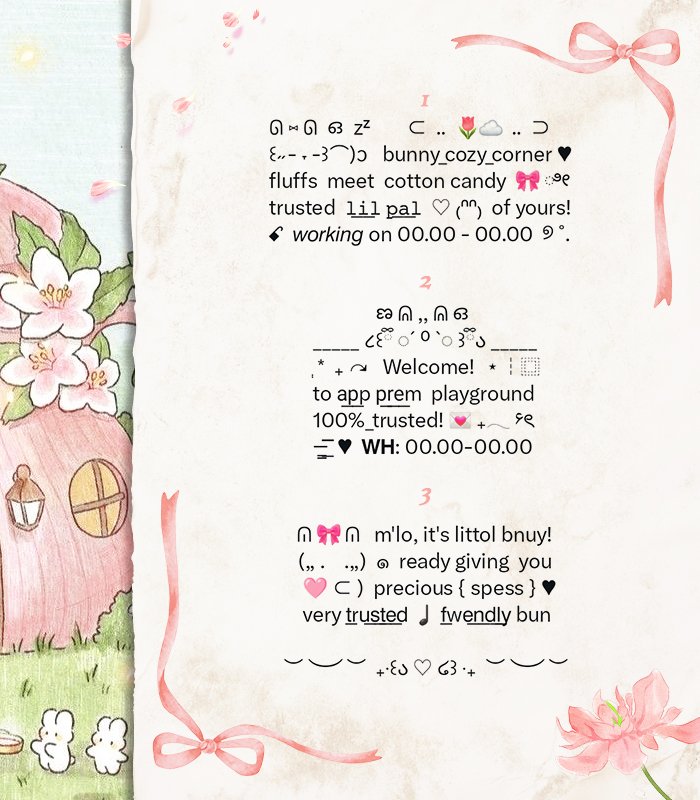 1
ᘏ ⑅ ᘏ ଓ zᶻ ⊂ .. 🌷☁️ .. ⊃
꒰˶- ˕ -꒱⌒)ა bunny_cozy_corner ♥
fluffs meet cotton candy 🎀 ೀ
trusted l̲i̲l̲ p̲a̲l̲ ♡ (ᐢᐢ) of yours!
➶ working on 00.00 - 00.00 ୨ ˚.
2
ଞ ᕱ ,, ᕱ ଓ
_____ ૮꒰ྀི ◌´ º `◌ ꒱ྀིა _____
.* ₊ ⤼ Welcome! ⋆ ┆⬚
to app prem playground
100%_trusted! 💌 ₊ ۶ৎ
♥ WH: 00.00-00.00
3
ᕱ 🎀 ᕱ m'lo, it's littol bnuy!
(„ . .„) ๑ ready giving you
🩷 ⊂ ) precious { spess } ♥
very trusted ♩ fwendly bun
︶ ‿ ︶ ₊‧꒰ა ♡ ໒꒱ ‧₊ ︶ ‿ ︶